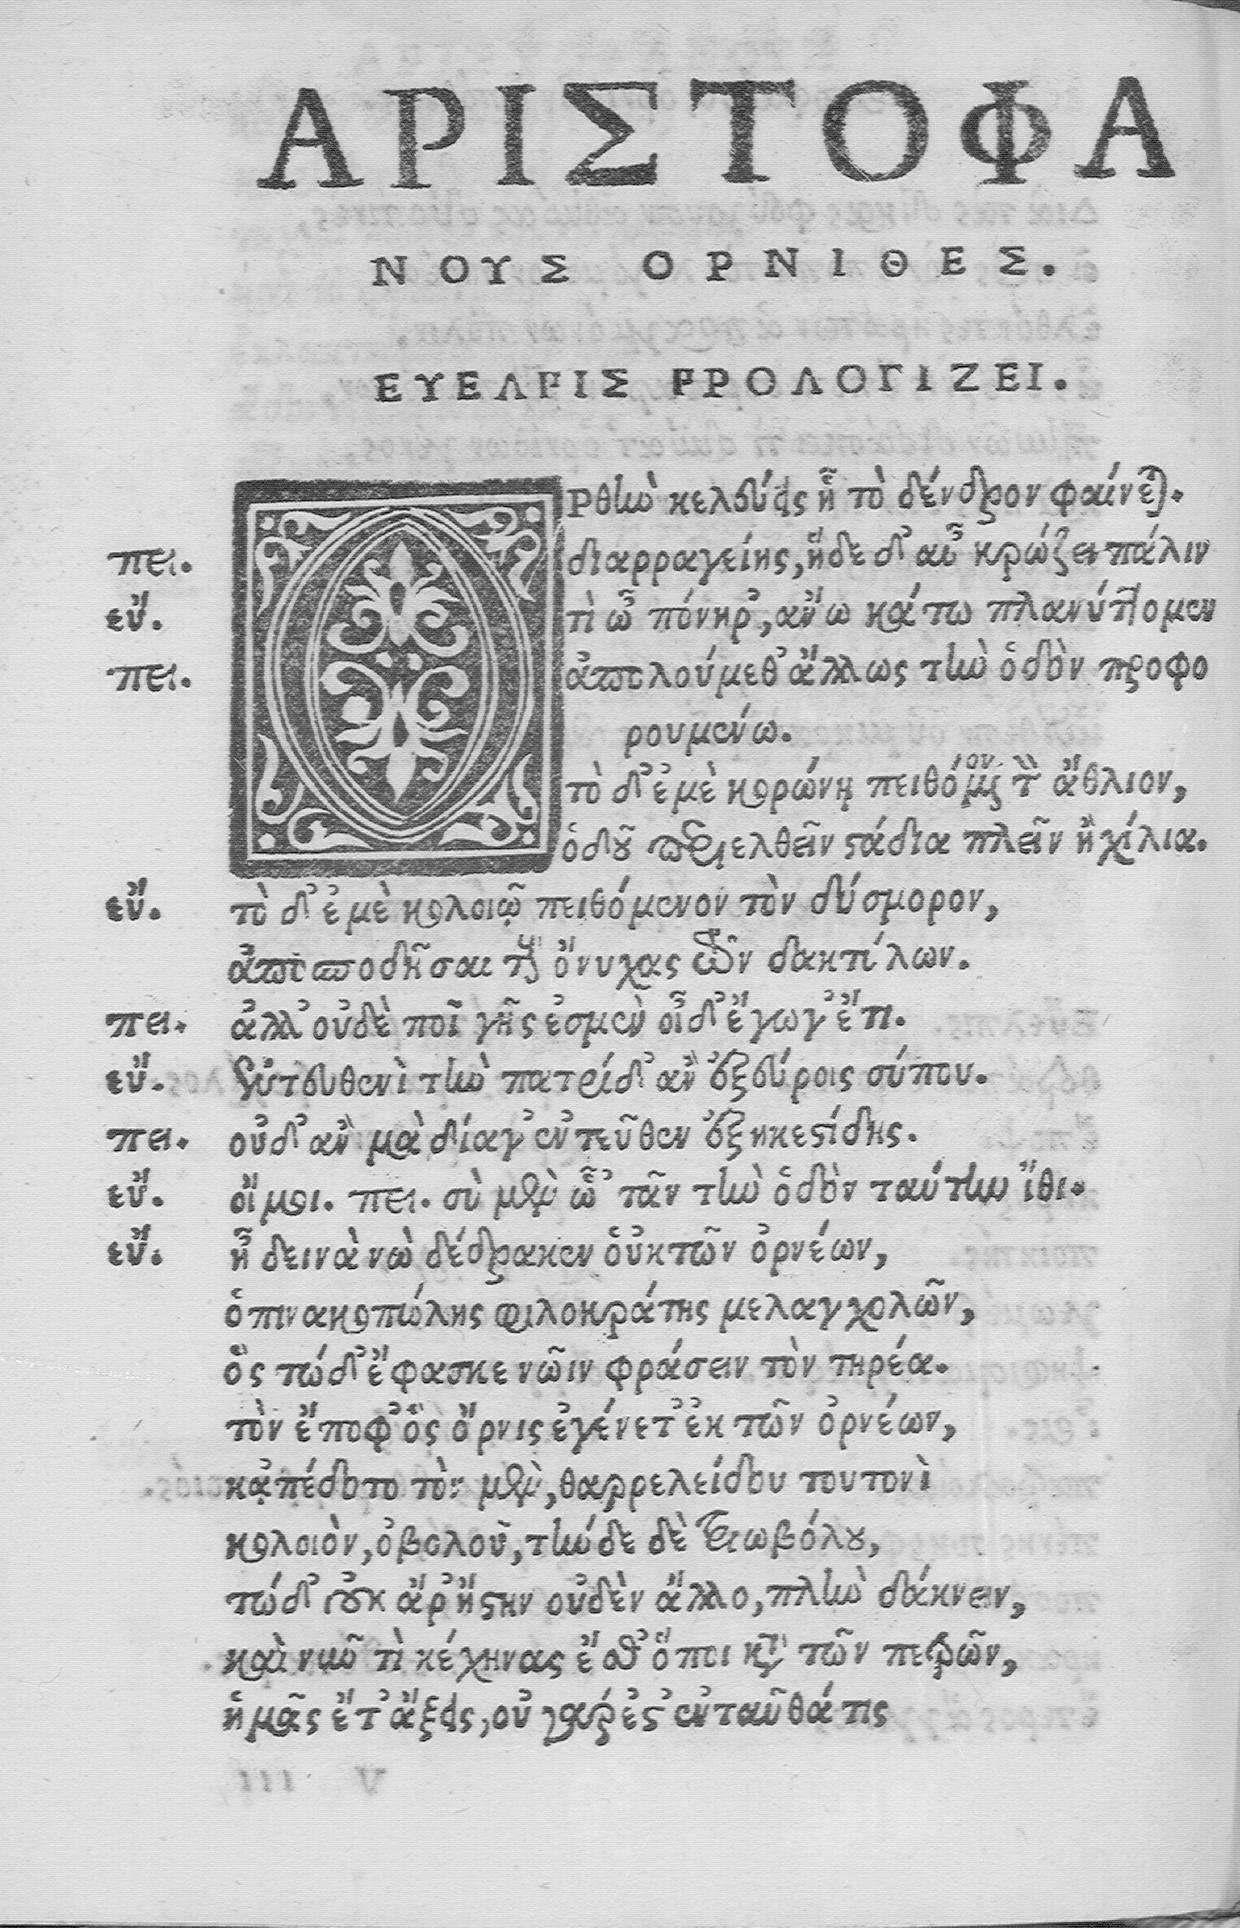 ΑΡΙΣΤΟΦΑ
ΝΟΥΣ ΟΡΝΙΘΕΣ.
ΕΥΕΛΠΙΣ ΠΡΟΛΟΓΙΖΕΙ.
ΟΡθὴν κελεύεις ᾗ τὸ δένδρον φαίνεται.
πει. διαρραγείης, ἥδε δ' αὖ κρώζει πάλιν
εὔ. τὶ ὦ πόνηρ', ἄνω κάτω πλανύττομεν
πει. ἀπολούμεθ' ἄλλως τὴν ὁδὸν προφο
ρουμένω.
τὸ δ' ἐμὲ κορώνῃ πειθόμενον τὸν ἄθλιον,
ὁδοῦ περιελθεῖν στάδια πλεῖν ἢ χίλια.
εὔ. τὸ δ' ἐμὲ κολοιῷ πειθόμενον τὸν δύσμορον,
ἀποσποδῆσαι τοὺς ὄνυχας τῶν δακτίλων.
πει. ἀλλ' οὐδὲ ποῖ γῆς ἐσμὲν οἶδ' ἔγωγ' ἔτι.
εὔ. ἐντευθενὶ τὴν πατρίδ' ἂν ἐξεύροις σύ που.
πει. οὐδ' ἂν μὰ δία γ' ἐντεῦθεν ἐξηκεστίδης.
εὔ. οἴμοι. πει. σὺ μὲν ὦ 'τᾶν τὴν ὁδὸν ταύτην ἴθι.
εὔ. ἦ δεινὰ νὼ δέδρακεν ὁὐκ τῶν ὀρνέων,
ὁ πινακοπώλης φιλοκράτης μελαγχολῶν,
ὃς τώδ' ἔφασκε νῶιν φράσειν τὸν τηρέα.
τὸν ἔποφ' ὃς ὄρνις ἐγένετ' ἐκ τῶν ὀρνέων,
κᾀπέδοτο τὸν μὲν, θαρρελείδου τουτονὶ
κολοιὸν, ὀβολοῦ, τὴνδε δὲ τριωβόλου,
τώδ' οὐκ ἄρ' ἤστην οὐδὲν ἄλλο, πλὴν δάκνειν,
καὶ νῦν τὶ κέχηνας ἔσθ' ὅποι κατὰ τῶν πετρῶν,
ἡμᾶς ἔτ' ἄξεις, οὐ γάρ ἐστ' ἐνταῦθά τις